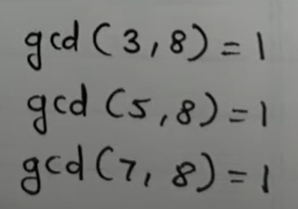 gcd (3,8) = 1
gcd (5,8) = 1
gcd (7, 8) = 1